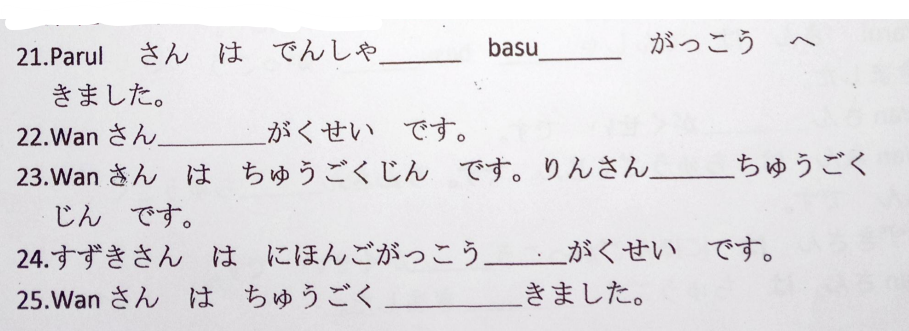 21.Parul さん は でんしゃ______ basu______ がっこう へ
きました。
22.Wan さん________がくせい です。
23.Wan さん は ちゅうごくじん です。りんさん______ちゅうごく
じん です。
24.すずきさん は にほんごがっこう______がくせい です。
25.Wan さん は ちゅうごく __________きました。